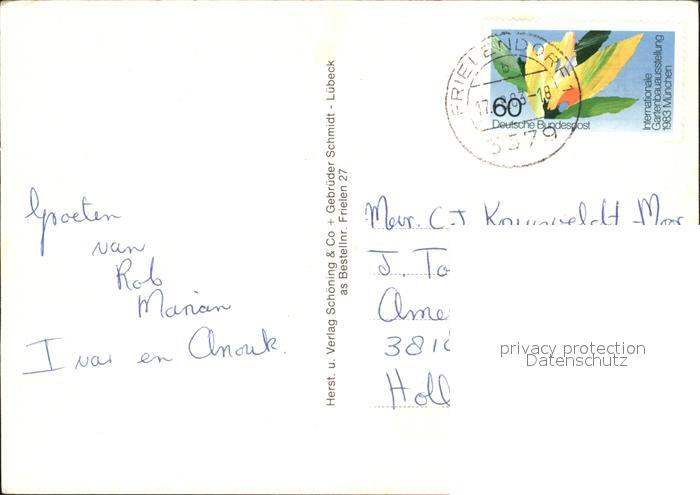 Groeten
van
Rob
Marian
Ivar en Anouk.
Herst. u. Verlag Schöning & Co + Gebrüder Schmidt - Lübeck
as Bestellnr. Frielen 27
FRIELENDORF
17. 83-18
3579
60
Deutsche Bundespost
Internationale
Gartenbauausstellung
1983 München
Mevr. C-J
J. To
Ame
381
Holl
privacy protection
Datenschutz